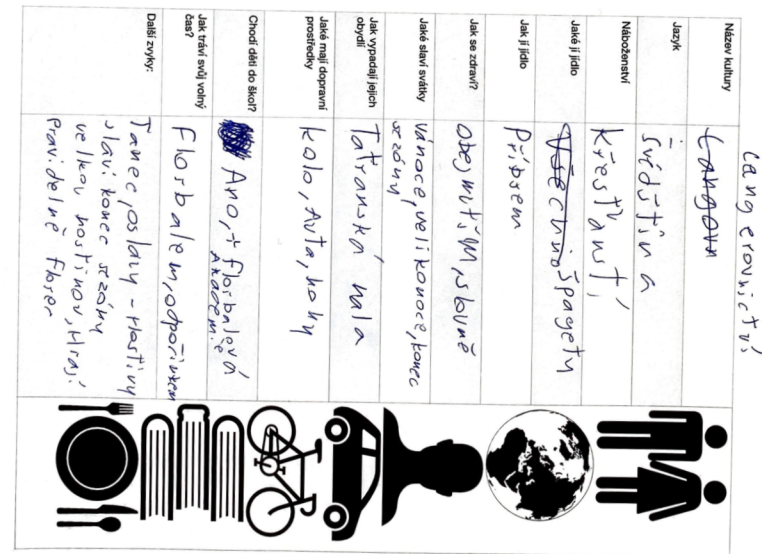 Langerovnictví
Název kultury
Langov
Jazyk
švédština
Náboženství
Křesťanství
Jaké jí jídlo
Všechno Špagety
Jak jí jídlo
Příbrem
Jak se zdraví?
Obejmutím, slovně
Jaké slaví svátky
vánoce, velikonoce, konec
sezóny
Jak vypadají jejich
obydlí
Tatranská hala
Jaké mají dopravní
prostředky
kolo, Auta, nohy
Chodí děti do škol?
Ano, + florbalová
Akademie
Jak tráví svůj volný
čas?
florbalem, odpočinkem
Další zvyky:
Tanec, oslavy - Hostiny
slaví konec sezóny
velkou hostinou, Hrají
Pravidelně